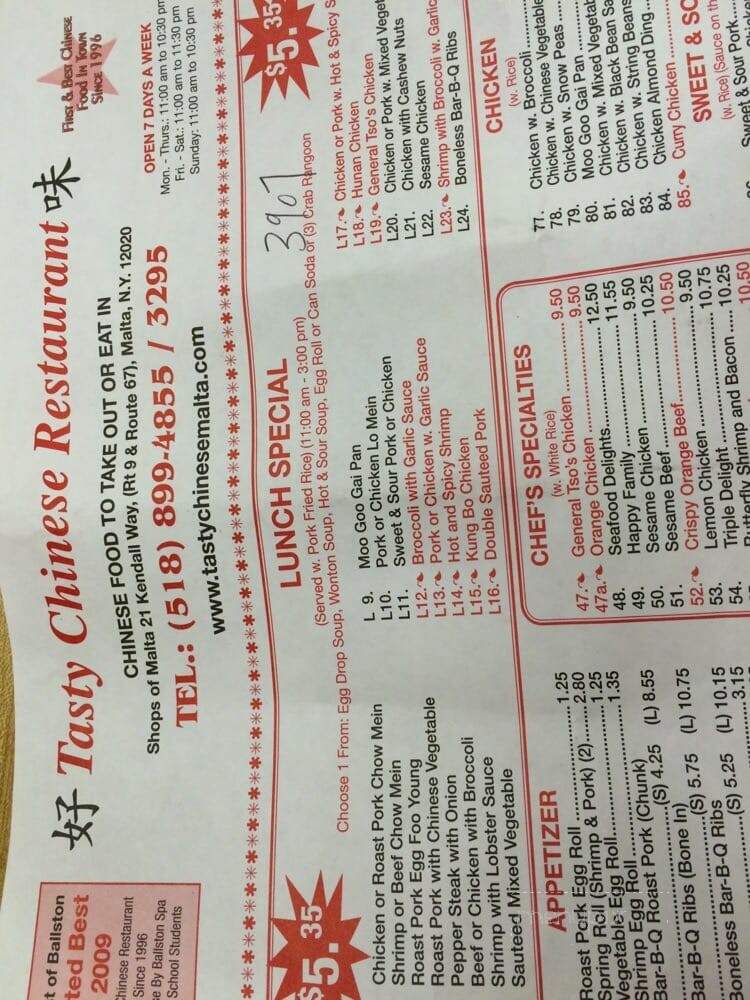 t of Ballston
ted Best
2009
Chinese Restaurant
Since 1996
se By Ballston Spa
School Students
好 Tasty Chinese Restaurant 味
CHINESE FOOD TO TAKE OUT OR EAT IN
Shops of Malta 21 Kendall Way, (Rt 9 & Route 67), Malta, N.Y. 12020
TEL.: (518) 899-4855 / 3295
www.tastychinesemalta.com
First & Best Chinese
Food In Town
Since 1996
OPEN 7 DAYS A WEEK
Mon. - Thurs.: 11:00 am to 10:30 pm
Fri. - Sat.: 11:00 am to 11:30 pm
Sunday: 11:00 am to 10:30 pm
$5.35
LUNCH SPECIAL
$5.35
(Served w. Pork Fried Rice) (11:00 am - 3:00 pm)
Choose 1 From: Egg Drop Soup, Wonton Soup, Hot & Sour Soup, Egg Roll or Can Soda or (3) Crab Rangoon
3907
Chicken or Roast Pork Chow Mein
Shrimp or Beef Chow Mein
Roast Pork Egg Foo Young
Roast Pork with Chinese Vegetable
Pepper Steak with Onion
Beef or Chicken with Broccoli
Shrimp with Lobster Sauce
Sauteed Mixed Vegetable
L 9. Moo Goo Gai Pan
L10. Pork or Chicken Lo Mein
L11. Sweet & Sour Pork or Chicken
L12. Broccoli with Garlic Sauce
L13. Pork or Chicken w. Garlic Sauce
L14. Hot and Spicy Shrimp
L15. Kung Bo Chicken
L16. Double Sauteed Pork
L17. Chicken or Pork w. Hot & Spicy S
L18. Hunan Chicken
L19. General Tso's Chicken
L20. Chicken or Pork w. Mixed Veget
L21. Chicken with Cashew Nuts
L22. Sesame Chicken
L23. Shrimp with Broccoli w. Garlic
L24. Boneless Bar-B-Q Ribs
APPETIZER
Roast Pork Egg Roll ........ 1.25
Spring Roll (Shrimp & Pork) (2) ... 2.80
Vegetable Egg Roll ........ 1.25
Shrimp Egg Roll ........ 1.35
Bar-B-Q Roast Pork (Chunk)
........ (S) 4.25 (L) 8.55
Bar-B-Q Ribs (Bone In)
........ (S) 5.75 (L) 10.75
Boneless Bar-B-Q Ribs
........ (S) 5.25 (L) 10.15
3.15
CHEF'S SPECIALTIES
(w. White Rice)
47. General Tso's Chicken ........ 9.50
47a. Orange Chicken ........ 9.50
48. Seafood Delights ........ 12.50
49. Happy Family ........ 11.55
50. Sesame Chicken ........ 9.50
51. Sesame Beef ........ 10.25
52. Crispy Orange Beef ........ 10.50
53. Lemon Chicken ........ 9.50
54. Triple Delight ........ 10.75
Butterfly Shrimp and Bacon ... 10.25
10.50
CHICKEN
(w. Rice)
77. Chicken w. Broccoli
78. Chicken w. Chinese Vegetable
79. Chicken w. Snow Peas
80. Moo Goo Gai Pan
81. Chicken w. Mixed Vegetab
82. Chicken w. Black Bean Sa
83. Chicken w. String Beans
84. Chicken Almond Ding
85. Curry Chicken
SWEET & SO
(w. Rice) (Sauce on th
Sweet & Sour Pork
Sweet & Sour Chicken